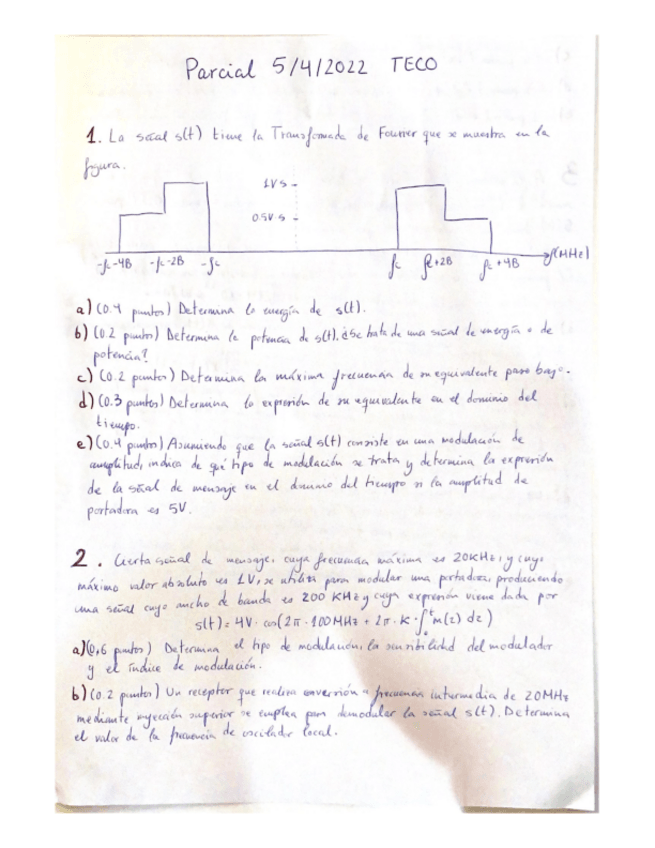 Parcial 5/4/2022 TECO
1. La señal s(t) tiene la Transformada de Fourier que se muestra en la
figura.
1V·s
0.5V·s
-fc-4B -fc-2B -fc fc fc+2B fc+4B f(MHz)
a) (0.4 puntos) Determina la energía de s(t).
b) (0.2 puntos) Determina la potencia de s(t). ¿Se trata de una señal de energía o de
potencia?
c) (0.2 puntos) Determina la máxima frecuencia de su equivalente paso bajo.
d) (0.3 puntos) Determina la expresión de su equivalente en el dominio del
tiempo.
e) (0.4 puntos) Asumiendo que la señal s(t) consiste en una modulación de
amplitud, indica de qué tipo de modulación se trata y determina la expresión
de la señal de mensaje en el dominio del tiempo si la amplitud de
portadora es 5V.
2. Cierta señal de mensaje, cuya frecuencia máxima es 20KHz, y cuyo
máximo valor absoluto es 1V, se utiliza para modular una portadora, produciendo
una señal cuyo ancho de banda es 200 KHz y cuya expresión viene dada por
s(t) = 4V · cos(2π · 100MHz + 2π · K · ∫₀ᵗ m(z) dz)
a) (0,6 puntos) Determina el tipo de modulación, la sensibilidad del modulador
y el índice de modulación.
b) (0.2 puntos) Un receptor que realiza conversión a frecuencia intermedia de 20MHz
mediante inyección superior se emplea para demodular la señal s(t). Determina
el valor de la frecuencia de oscilador local.